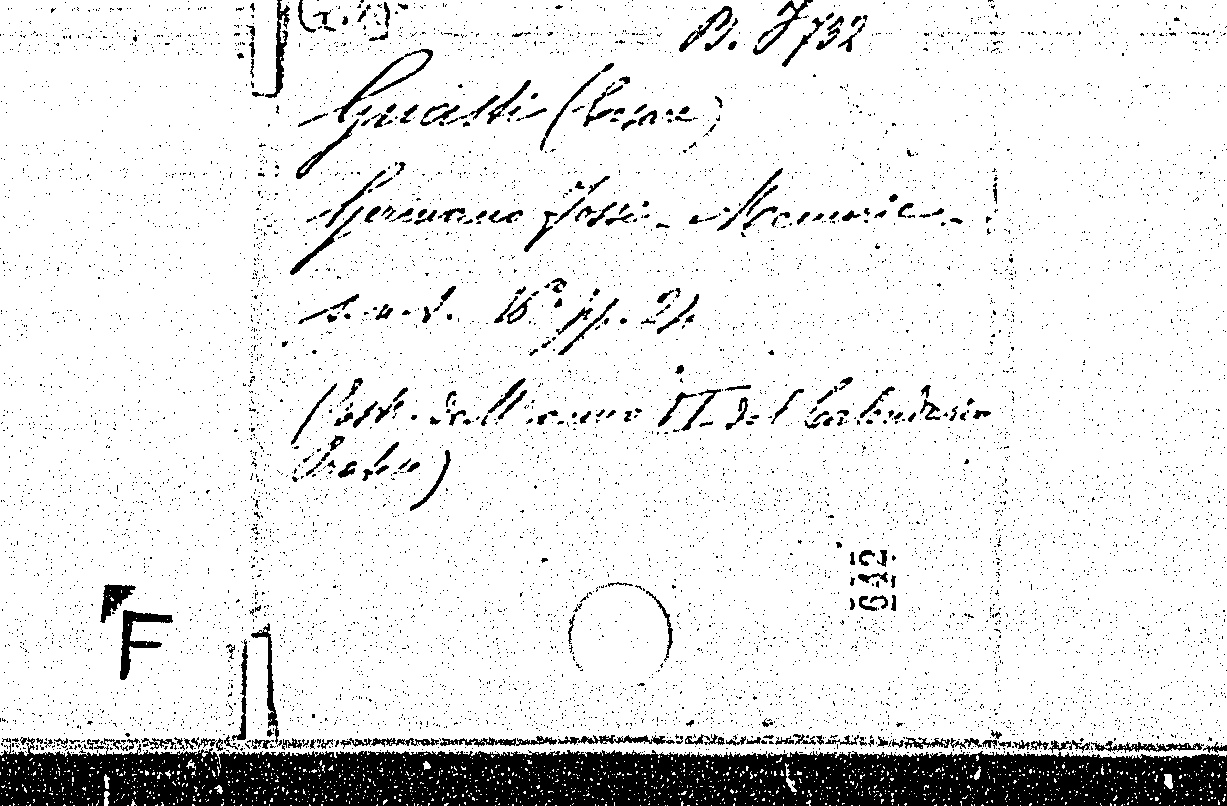 B. J 732
Guasti (Cesare)
Germano Fossi - Memorie -
s. n. t. 16° pp. 24
(Estr. dall'anno II del Calendario
Pratese)
642
F